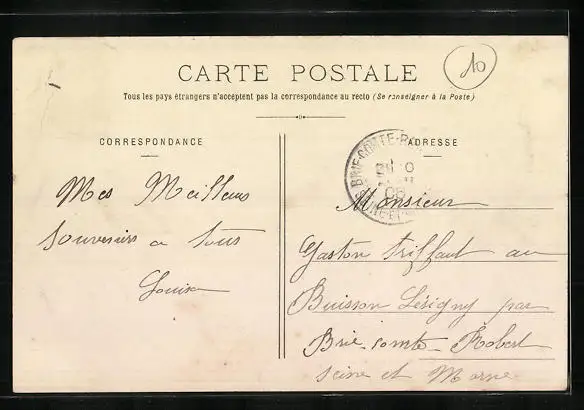 10
CARTE POSTALE
Tous les pays étrangers n'acceptent pas la correspondance au recto (Se renseigner à la Poste)
CORRESPONDANCE
ADRESSE
BRIE-COMTE-R
Mes Meilleurs
Souvenirs a tous
Louise
Monsieur
Gaston Triffaut au
Buisson Lésigny par
Brie-comte-Robert
Seine et Marne